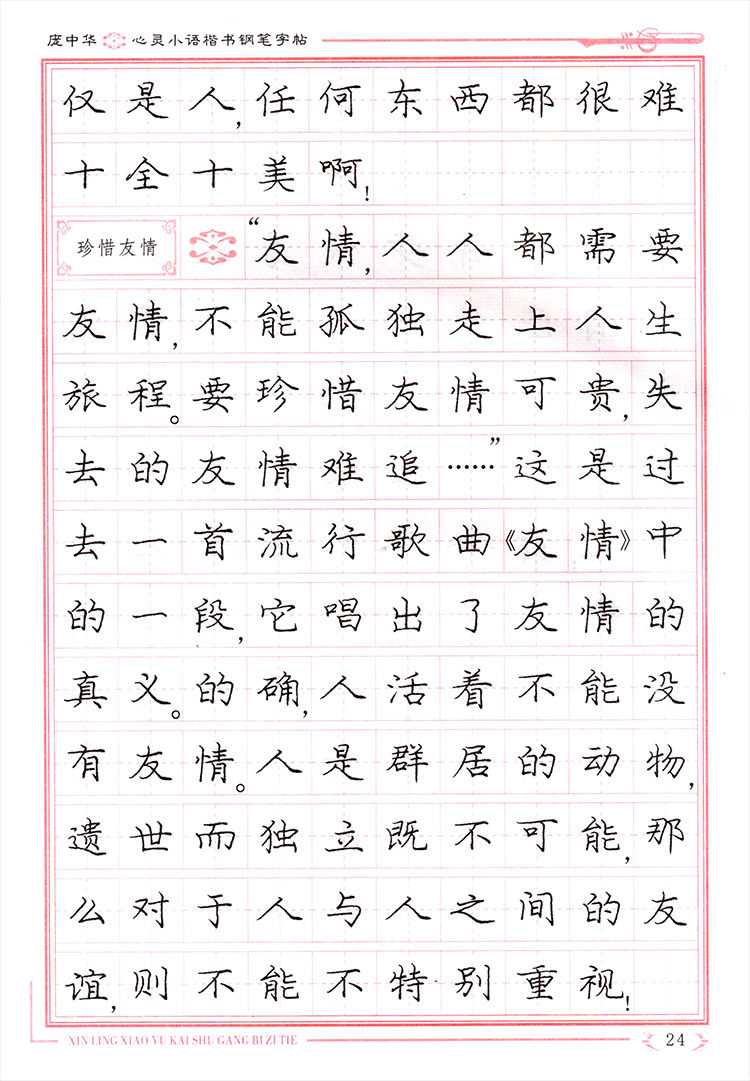 庞中华 心灵小语楷书钢笔字帖
仅是人,任何东西都很难
十全十美啊!
珍惜友情 “友情,人人都需要
友情,不能孤独走上人生
旅程。要珍惜友情可贵,失
去的友情难追……”这是过
去一首流行歌曲《友情》中
的一段,它唱出了友情的
真义。的确,人活着不能没
有友情。人是群居的动物,
遗世而独立既不可能,那
么对于人与人之间的友
谊,则不能不特别重视!
XIN LING XIAO YU KAI SHU GANG BI ZI TIE 24